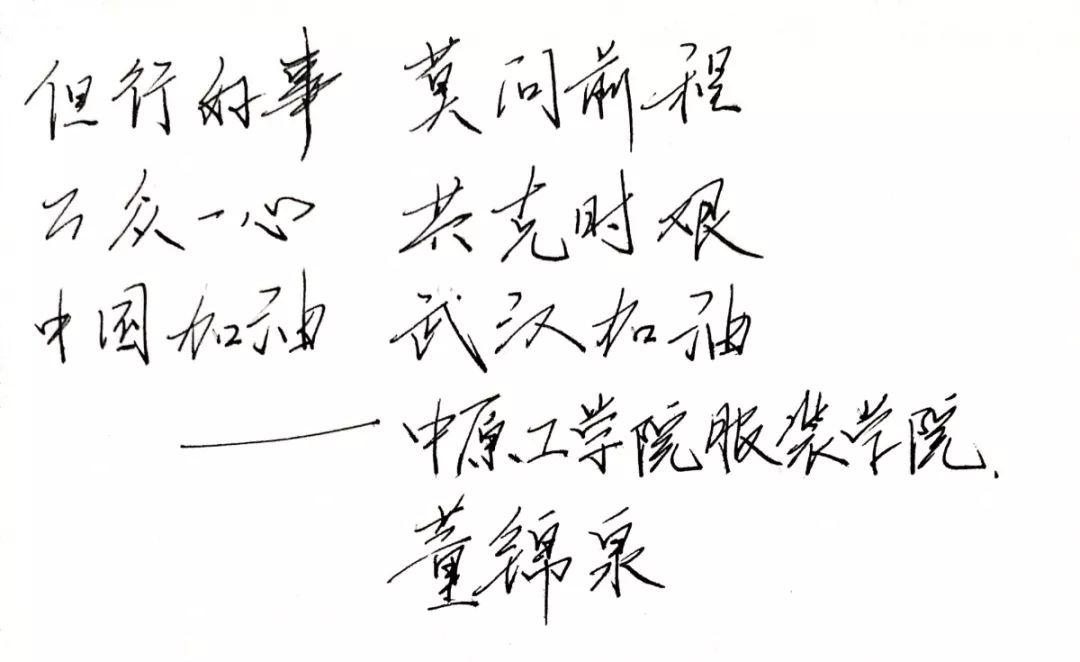 但行好事 莫问前程
万众一心 共克时艰
中国加油 武汉加油
——中原工学院服装学院.
董锦泉